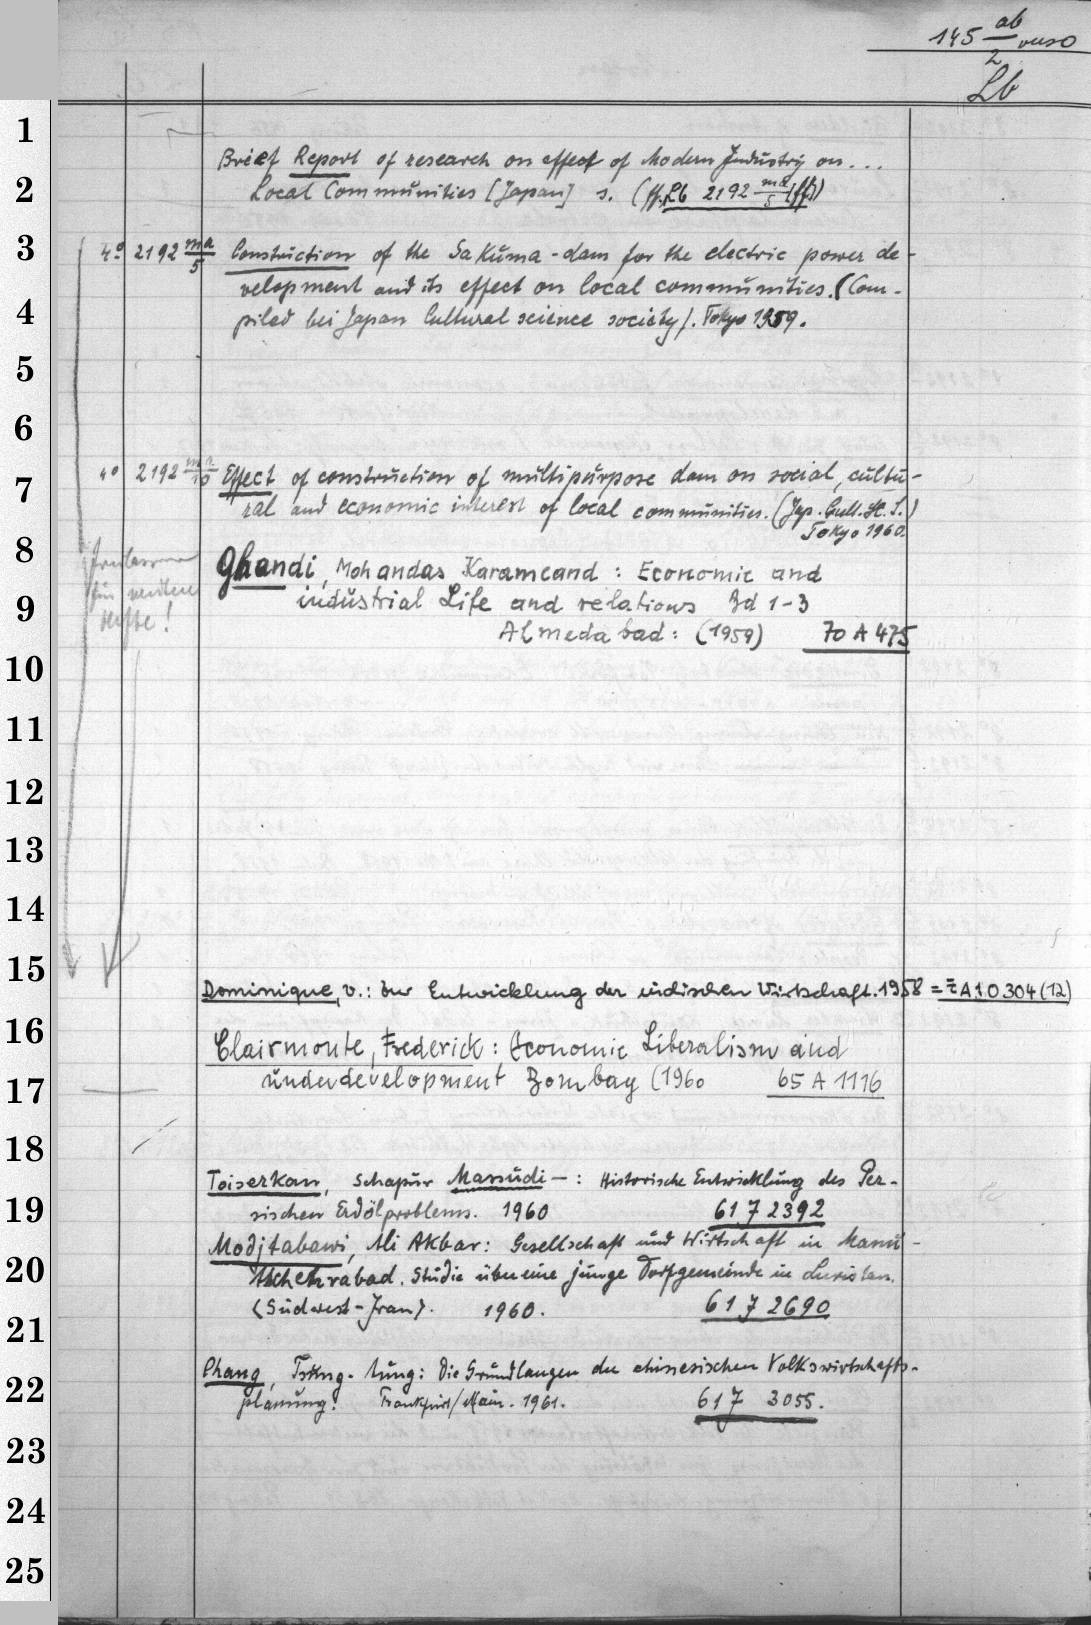 145 ab/2 verso
Lb
Brief Report of research on effect of Modern Industry on...
Local Communities [Japan] s. (ff. Lb 2192 ma/5 (ff))
4° 2192 ma/5 Construction of the Sakuma-dam for the electric power de-
velopment and its effect on local communities. (Com-
piled bei Japan Cultural science society). Tokyo 1959.
4° 2192 ma/10 Effect of construction of multipurpose dam on social, cultu-
ral and economic interest of local communities. (Jap. Cult. Sc. S.)
Tokyo 1960.
Ghandi, Mohandas Karamcand: Economic and
industrial Life and relations Bd 1-3
Almedabad: (1959) 70 A 475
freilassen
für weitere
Hefte!
Dominique, v.: zur Entwicklung der indischen Wirtschaft. 1958 = Z A 10304 (12)
Clairmonte, Frederick: Economic Liberalism and
underdevelopment Bombay (1960 65 A 1116
Toiserkan, Schapur Massudi-: Historische Entwicklung des Per-
sischen Erdölproblems. 1960 61 7 2392
Modjtabawi, Ali Akbar: Gesellschaft und Wirtschaft in Manu-
tschehrabad. Studie über eine junge Dorfgemeinde in Luristan.
(Südwest-Iran). 1960. 61 7 2690
Phang, Tsung-hung: Die Grundlangen der chinesischen Volkswirtschafts-
planung. Frankfurt/Main. 1961. 61 7 3055.
1
2
3
4
5
6
7
8
9
10
11
12
13
14
15
16
17
18
19
20
21
22
23
24
25